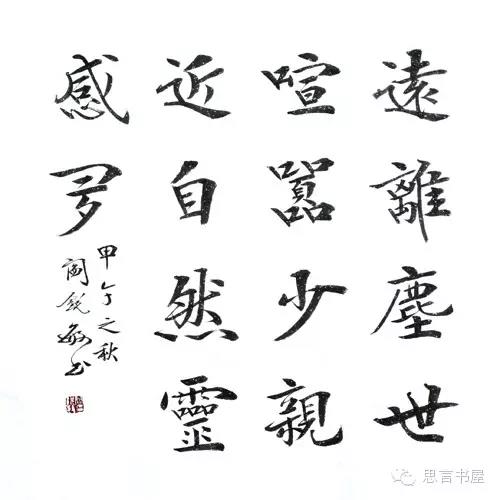 遠離塵世
喧囂少親
近自然靈
感多
甲午之秋
书
思言书屋